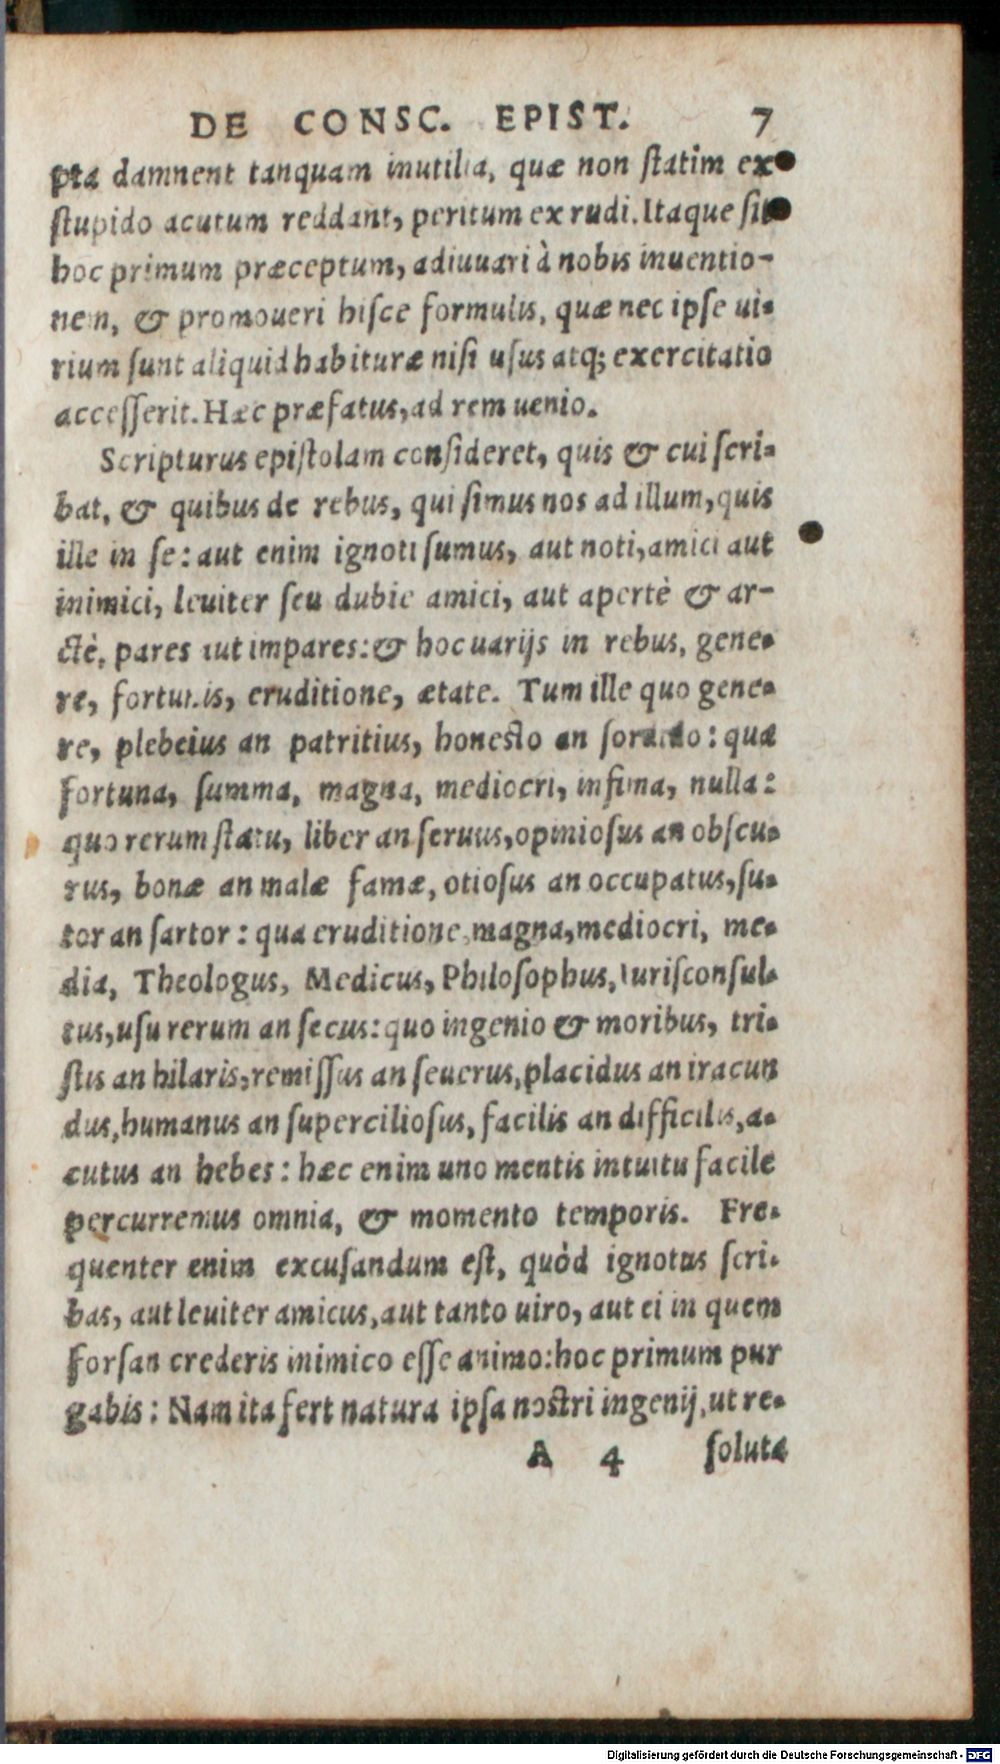 DE CONSC. EPIST. 7
pta damnent tanquam inutilia, quæ non statim ex
stupido acutum reddant, peritum ex rudi. Itaque sit
hoc primum præceptum, adiuuari à nobis inuentio-
nem, & promoueri hisce formulis, quæ nec ipse ui-
rium sunt aliquid habituræ nisi usus atq; exercitatio
accesserit. Hæc præfatus, ad rem uenio.
Scripturus epistolam consideret, quis & cui scri-
bat, & quibus de rebus, qui simus nos ad illum, quis
ille in se: aut enim ignoti sumus, aut noti, amici aut
inimici, leuiter seu dubie amici, aut apertè & ar-
ctè, pares aut impares: & hoc uarijs in rebus, gene-
re, fortunis, eruditione, ætate. Tum ille quo gene-
re, plebeius an patritius, honesto an sordido: qua
fortuna, summa, magna, mediocri, infima, nulla:
quo rerum statu, liber an seruus, opiniosus an obscu-
rus, bonæ an malæ famæ, otiosus an occupatus, su-
tor an sartor: qua eruditione, magna, mediocri, me-
dia, Theologus, Medicus, Philosophus, Iurisconsul-
tus, usu rerum an secus: quo ingenio & moribus, tri-
stis an hilaris, remissus an seuerus, placidus an iracun
dus, humanus an superciliosus, facilis an difficilis, a-
cutus an hebes: hæc enim uno mentis intuitu facile
percurremus omnia, & momento temporis. Fre-
quenter enim excusandum est, quòd ignotus scri-
bas, aut leuiter amicus, aut tanto uiro, aut ei in quem
forsan crederis inimico esse animo: hoc primum pur
gabis: Nam ita fert natura ipsa nostri ingenij, ut re-
A 4 soluta
Digitalisierung gefördert durch die Deutsche Forschungsgemeinschaft - DFG